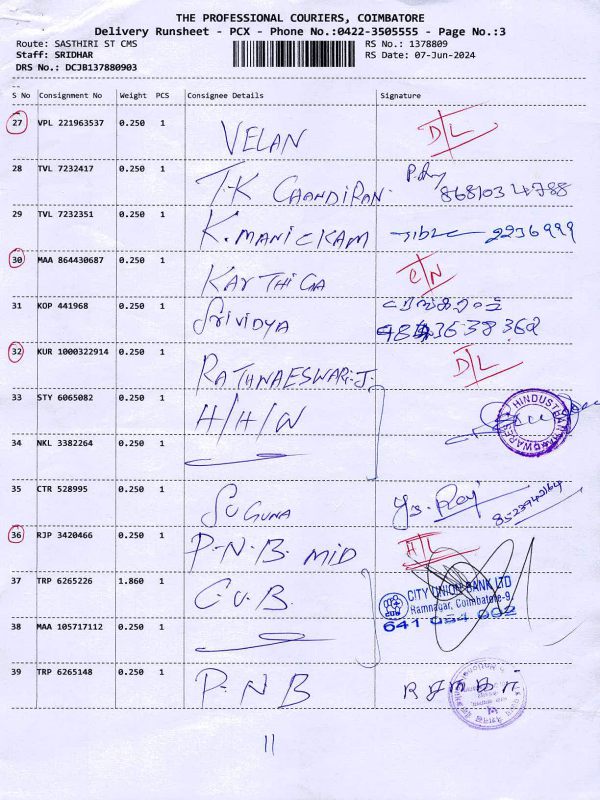 THE PROFESSIONAL COURIERS, COIMBATORE
Delivery Runsheet - PCX - Phone No.:0422-3505555 - Page No.:3
Route: SASTHIRI ST CMS RS No.: 1378809
Staff: SRIDHAR RS Date: 07-Jun-2024
DRS No.: DCJB137880903
S No Consignment No Weight PCS Consignee Details Signature
27 VPL 221963537 0.250 1 VELAN D/L
28 TVL 7232417 0.250 1 T.K CHANDIRAN.
29 TVL 7232351 0.250 1 K. MANICKAM 2236999
30 MAA 864430687 0.250 1 KARTHIGA C/N
31 KOP 441968 0.250 1 SRIVIDYA
32 KUR 1000322914 0.250 1 RATHNAESWARI.J. D/L
33 STY 6065082 0.250 1 H/H/W HINDUSTAN HARDWARES
34 NKL 3382264 0.250 1
35 CTR 528995 0.250 1 SUGUNA
36 RJP 3420466 0.250 1 P.N.B. MID H/L
37 TRP 6265226 1.860 1 C.U.B. CITY UNION BANK LTD
Ramnagar, Coimbatore-9.
641 054 002
38 MAA 105717112 0.250 1
39 TRP 6265148 0.250 1 P.N B
11